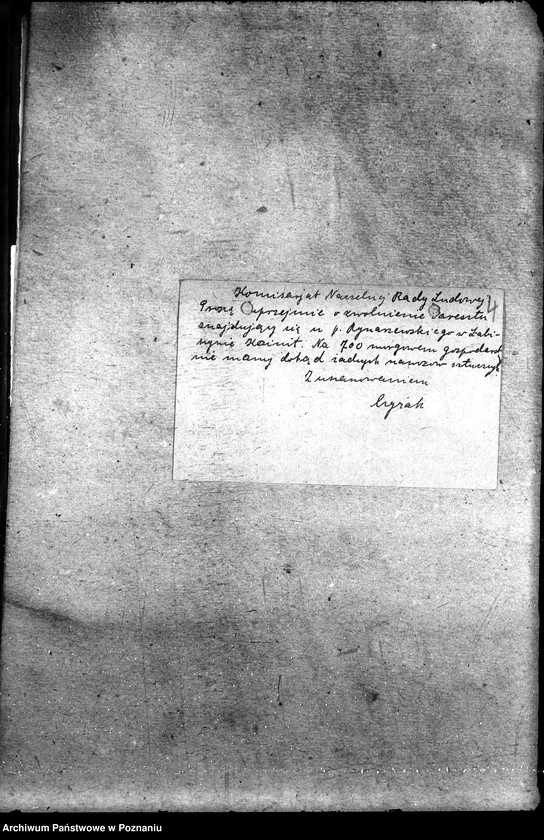 Komisarjat Naczelnej Rady Ludowej
4
Proszę Uprzejmie o zwolnienie z aresztu
znajdujący się u p. Rynarzewskiego w Łabi-
szynie Kainit. Na 700 morgowem gospodarst
nie mamy dotąd żadnych nawozów sztuczych
Z uszanowaniem
Archiwum Państwowe w Poznaniu